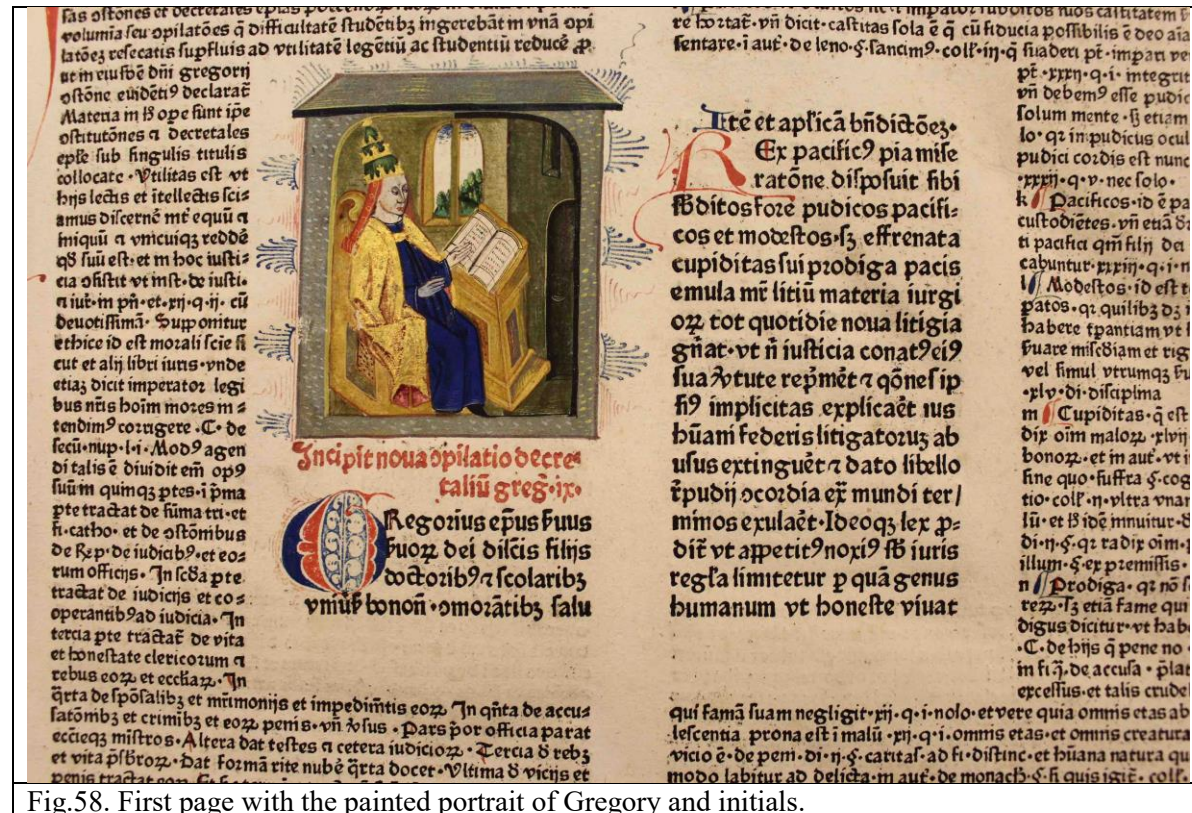 volumia seu opilatões q̃ difficultatē studētibꝫ ingerebāt in vnā opi
latōeꝫ resecatis supfluis ad vtilitatē legētiū ac studentiū reducē ꝓ
ut in eiusdē dn̄i gregorij
ostōne euidētiꝰ declarat̄
Materia in ħ ope sunt ip̄e
ostitutōnes ⁊ decretales
ep̄le sub singulis titulis
collocate · Vtilitas est vt
hijs lectis et itellectis scis
amus discernē int̄ equū ⁊
iniquū ⁊ vnicuiqꝫ reddē
qđ suū est · et in hoc iusti⸗
cia ōsistit vt inst · de iusti ·
⁊ iur̄ · in pn̄ · et · xij · q · ij · cū
deuotissimā · Supponitur
ethice id est morali scīe si
cut et alij libri iuris · vnde
etiaꝫ dicit imperator legi
bus nr̄is hoīm mores in ⸗
tendimꝰ corrigere · C · de
secū · nup · l · i · Modꝰ agen
di talis ē diuidit em̄ opꝰ
suū in quinqꝫ ptes · i p̄ma
pte tractat de sūma tri · et
fi · catho · et de ostōmbus
de Rep̄ · de iudicibꝰ · et eo⸗
rum officijs · In scđa pte
tractat de iudicijs et co⸗
operantibꝰ ad iudicia · In
tercia pte tractat̄ de vita
et honestate clericorum ⁊
rebus eoꝝ et eccl̄iaꝝ · In
q̄rta de spōsalibꝫ et mr̄imonijs et impedim̄tis eoꝝ In qn̄ta de accu⸗
satōmbꝫ et crimībꝫ et eoꝝ penis · vn̄ ꝟsus · Pars p̄or officia parat
eccl̄ieqꝫ mīstros · Altera dat testes ⁊ cetera iudicioꝝ · Tercia đ rebꝫ
et vita p̄sbroꝝ · Dat formā rite nubē q̄rta docet · Vltima đ vicijs et
Incipit noua ɔpilatio decre⸗
taliū greg̃ · ix ·
GRegorius ep̄us ẜuus
ẜuoꝝ dei dilc̄is filijs
doctoribꝰ ⁊ scolaribꝫ
vniuẜ bonon̄ · ɔmorātibꝫ salu
tē et apl̄icā bn̄dictōeꝫ ·
REx pacificꝰ pia mise
ratōne disposuit sibi
sb̄ditos fore pudicos pacifi⸗
cos et modestos · sꝫ effrenata
cupiditas sui prodiga pacis
emula mr̄ litiū materia iurgi
oꝝ tot quotidie noua litigia
gn̄at · vt n̄ iusticia conatꝰ eiꝰ
sua ꝟtute rep̄mēt ⁊ qōnes ip
siꝰ implicitas explicaēt ius
hūani federis litigatoruꝫ ab
usus extinguēt ⁊ dato libello
r̄pudij ɔcordia ex̄ mundi ter /
minos exulaēt · Ideoqꝫ lex ꝓ⸗
dit̄ vt appetitꝰ noxiꝰ sb̄ iuris
regl̄a limitetur p quā genus
humanum vt honeste viuat
re hortat̄ · vn̄ dicit · castitas sola ē q̄ cū fiducia possibilis ē deo aīa
sentare · i aut̄ · de leno · § · sancimꝰ · coll̄ · iij · q̄ suaderi pt̄ · impari
pt̄ · xxxij · q · i · integrit
vn̄ debemꝰ esse pudic
solum mente · sꝫ etiam
lo · qꝛ inpudicus ocul
pudici cordis est nunc
· xxxij · q · v · nec solo ·
k Pacificos · id ē pa
custodiētes · vn̄ etiā
ti pacifici qm̄ filij dei
cabuntur · xxxiij · q · i · n
l Modestos · id est t
patos · qꝛ quilibꝫ dꝫ
habere tpantiam vt
ẜuare mis̄cđiam et rig
vel simul vtrumqꝫ
· xlv · di · disciplina
m Cupiditas · q̄ est
dix oīm maloꝝ · xlvij
bonoꝝ · et in aut̄ · vt i
sine quo · suffra § · cog
tio · coll̄ · ij · vltra vnam
lū · et ħ idē innuitur ·
di · ij · § · qꝛ radix oīm ·
illum · § · ex premissis ·
n Prodiga · qꝛ nō s
reꝝ · sꝫ etiā fame qui
digus dicitur · vt hab
· C · de hijs q̄ pene no ·
in fi · ij · de accusa · p̄lat
excessus · et talis crudel
qui famā suam negligit · xij · q · i · nolo · et vere quia omnis etas ab
lescentia prona est i malū · xij · q · i · omnis etas · et omnis creatura
vicio ē · de peni · di · ij · § · caritas · ad fi · distinc · et hūana natura qu
modo labitur ad delicta · in aut̄ · de monach · § · si quis igit̄ · coll̄ ·
Fig.58. First page with the painted portrait of Gregory and initials.